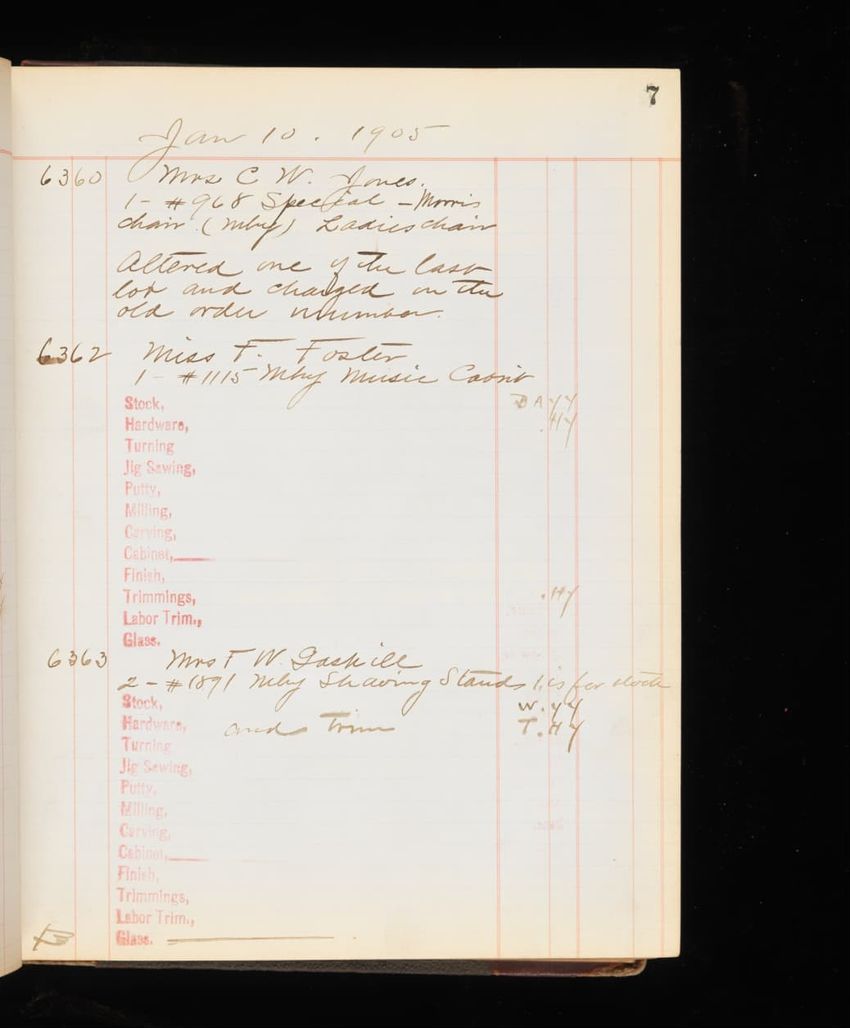 7
Jan 10. 1905
6360 Mrs C W. Jones.
1- #968 Special - Morris
chair (Mhy) Ladies chair
Altered one of the last
lot and charged on the
old order number.
6362 Miss F. Foster
1- #1115 Mhy Music Cabnt
Stock, DAYY
Hardware, .HY
Turning
Jig Sawing,
Putty,
Milling,
Carving,
Cabinet,
Finish,
Trimmings, .HY
Labor Trim.,
Glass.
6363 Mrs F W. Gaskill
2- #1891 Mhy Shaving Stands 1 is for stock
Stock, W.YY
Hardware, and Trim T.HY
Turning
Jig Sawing,
Putty,
Milling,
Carving,
Cabinet,
Finish,
Trimmings,
Labor Trim.,
Glass.